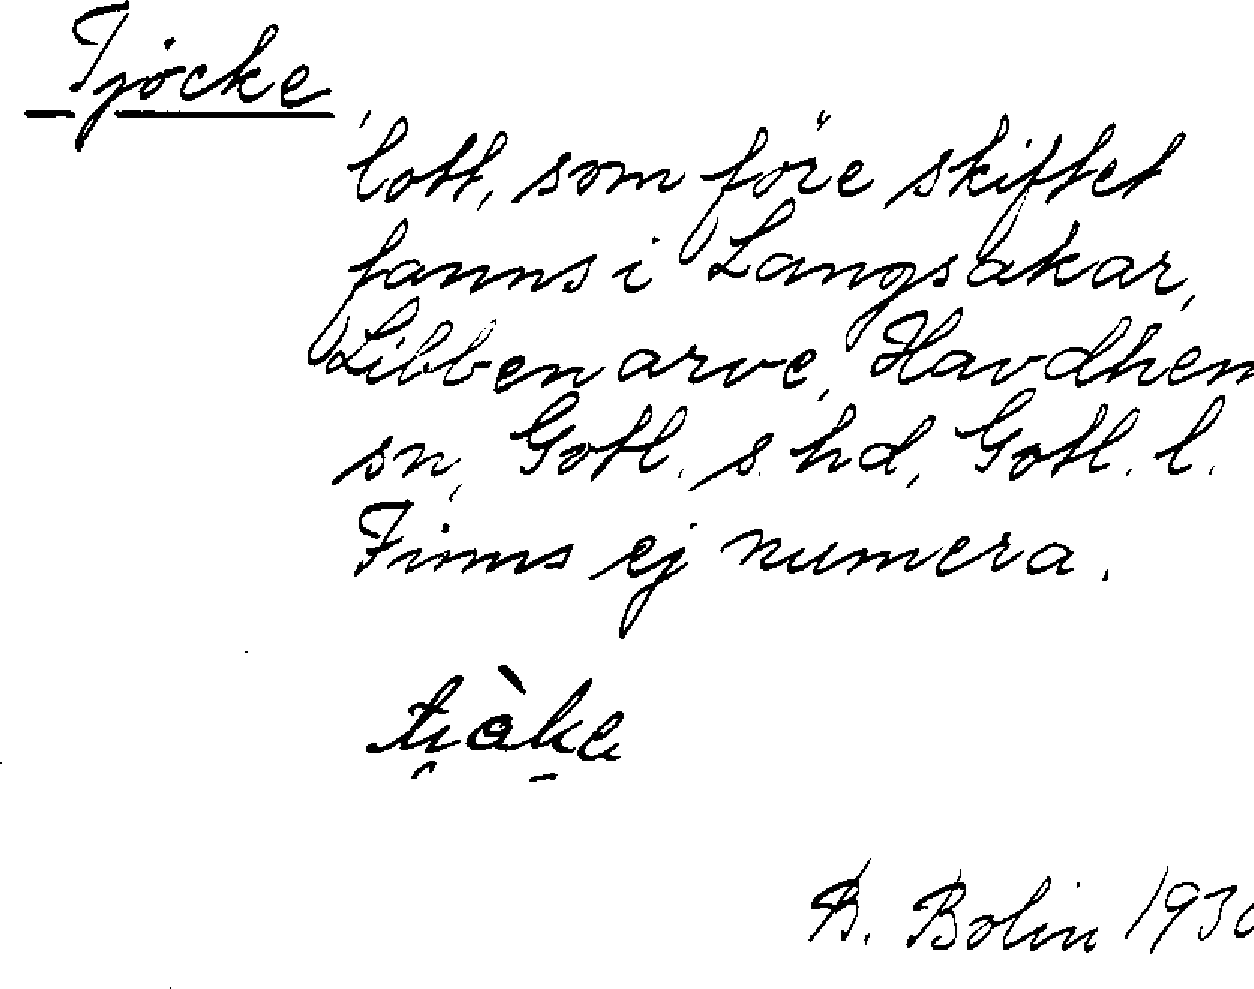 Tjocke,
lott, som före skiftet
fanns i Langsakar,
Libbenarve, Havdhem
sn, Gotl. s. hd, Gotl. l.
Finns ej numera.
B. Bolin 193